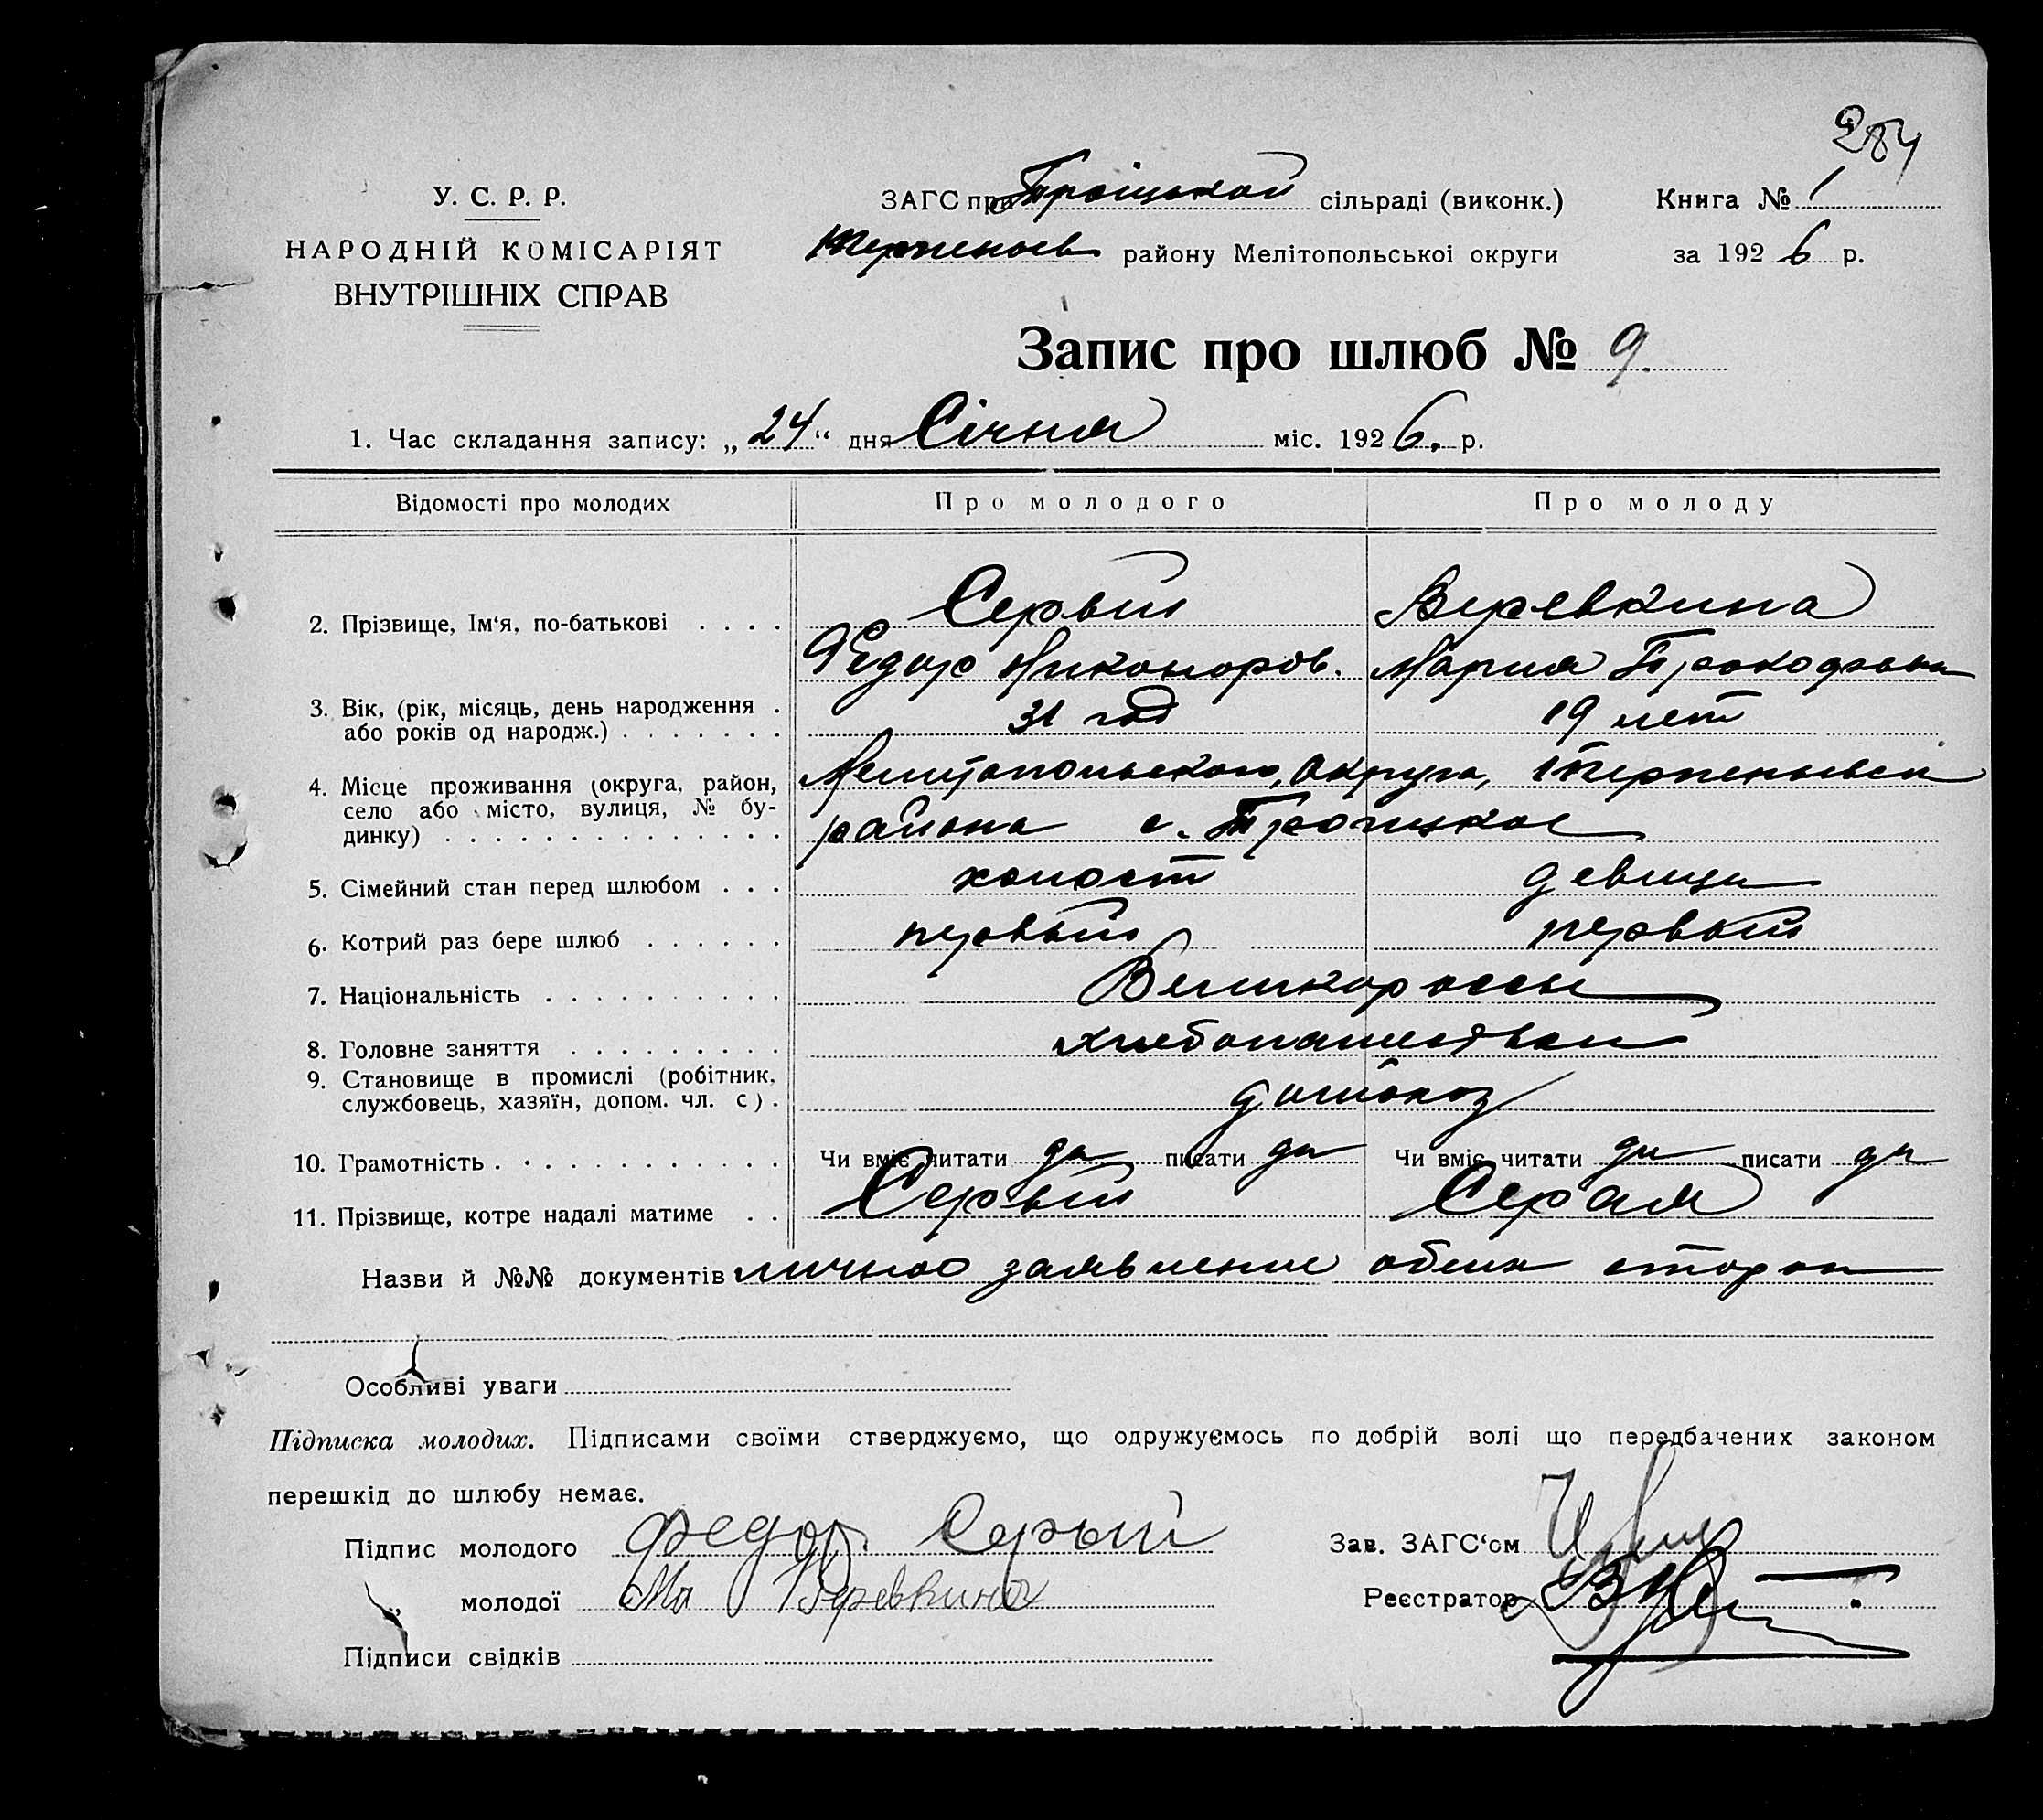 284
У. С. Р. Р.
НАРОДНІЙ КОМІСАРІЯТ
ВНУТРІШНІХ СПРАВ
ЗАГС при Троіцькой сільраді (виконк.)
Терпеньев району Мелітопольської округи
Книга № 1
за 1926 р.
Запис про шлюб № 9.
1. Час складання запису: „24“ дня Січня міс. 1926. р.
Відомості про молодих Про молодого Про молоду
2. Прізвище, Ім‘я, по-батькові . . . . Серый Веревкина
Федор Никоноров. Мария Прокофьевн
3. Вік, (рік, місяць, день народження .
або років од народж.) . . . . . . . 31 год 19 лет
4. Місце проживання (округа, район, Мелитопольского, Округа, Терпеньевск
село або місто, вулиця, № бу- района с. Троицкое
динку) . . . . . . . . . . . . . .
5. Сімейний стан перед шлюбом . . . холост девица
6. Котрий раз бере шлюб . . . . . . первый первый
7. Національність . . . . . . . . . . Великороссы
8. Головне заняття . . . . . . . . . хлебопашество
9. Становище в промислі (робітник,
службовець, хазяїн, допом. чл. с) .
10. Грамотність . . . . . . . . . . . . Чи вміє читати да писати да Чи вміє читати да писати да
11. Прізвище, котре надалі матиме . . Серый Серая
Назви й №№ документів личное заявление обеих сторон
Особливі уваги
Підписка молодих. Підписами своїми стверджуємо, що одружуємось по добрій волі що передбачених законом
перешкід до шлюбу немає.
Підпис молодого Федор Серый
Зав. ЗАГС‘ом
„ молодої Ма Веревкина
Реєстратор
Підписи свідків